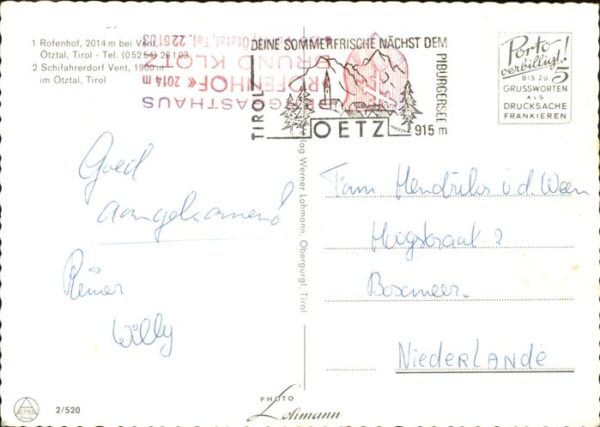 1 Rofenhof, 2014 m bei Vent,
Ötztal, Tirol - Tel. (05254) 26103
2 Schifahrerdorf Vent, 1900 m
im Ötztal, Tirol
BERGGASTHAUS
»ROFENHOF« 2014 m
BRUNO KLOTZ
Ötztal, Tel. 226103
DEINE SOMMERFRISCHE NÄCHST DEM
PIBURGERSEE
TIROL
OETZ
915 m
Porto
verbilligt!
BIS ZU 5
GRUSSWORTEN
ALS
DRUCKSACHE
FRANKIEREN
Goed
aangekomen!
Reiner
Willy
Verlag Werner Lohmann, Obergurgl, Tirol
Fam Hendriks v d Ween
Hoogstraat 2
Boxmeer
NIEDERLANDE
2/520
PHOTO
Lohmann